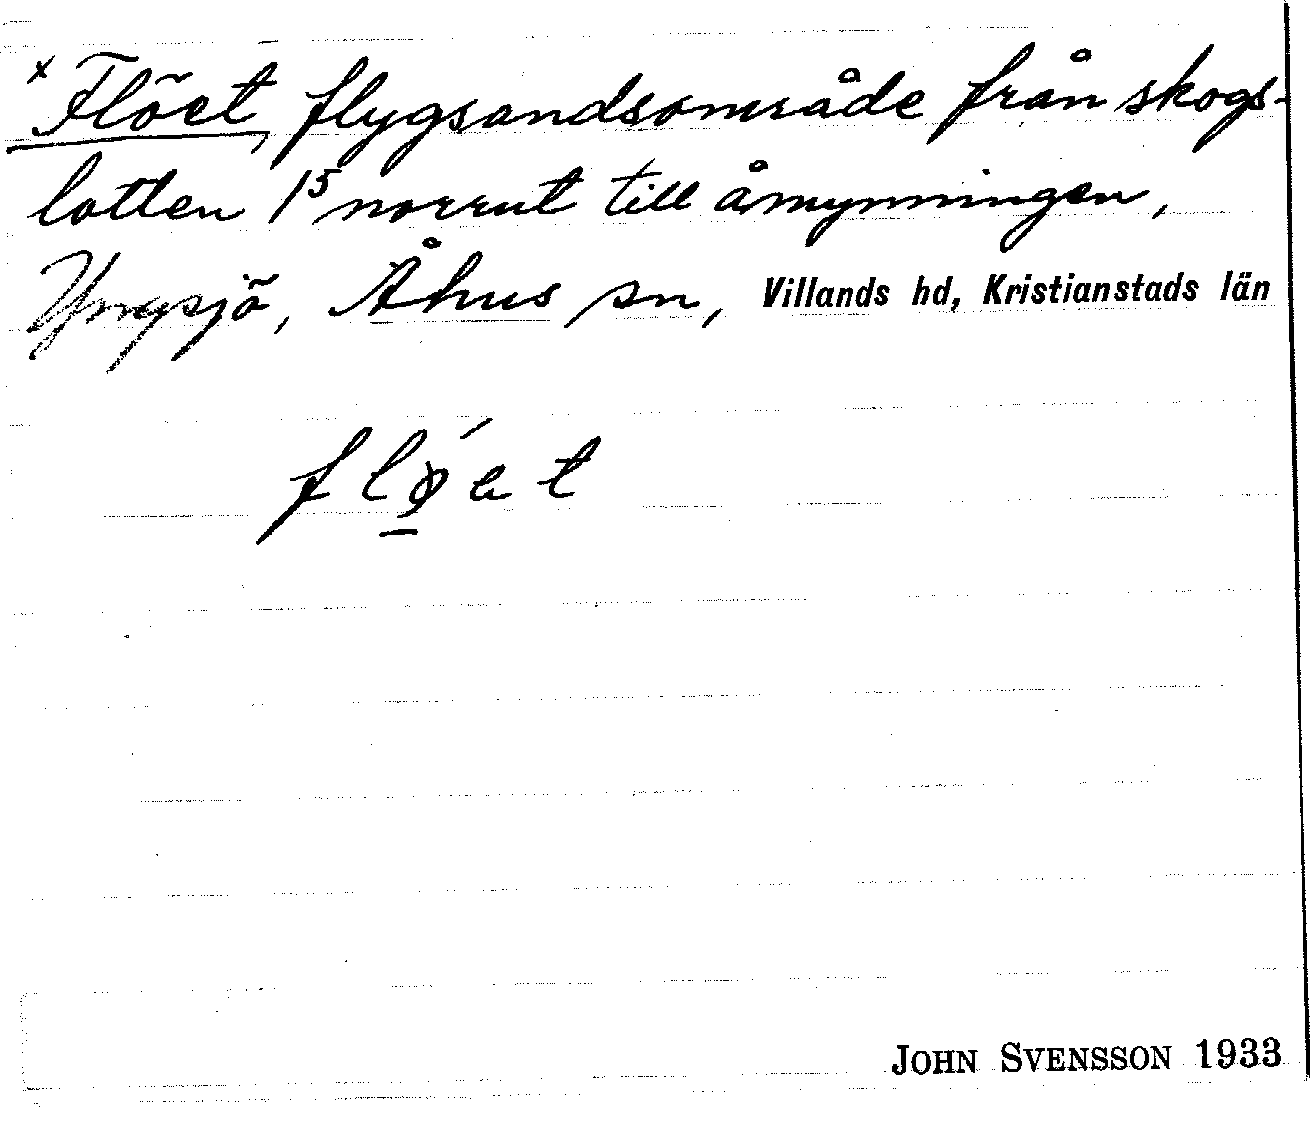 x Flöet, flygsandsområde från skogs-
lotten 1⁵ norrut till åmynningen,
Yngsjö, Åhus sn, Villands hd, Kristianstads län
flǿet
JOHN SVENSSON 1933